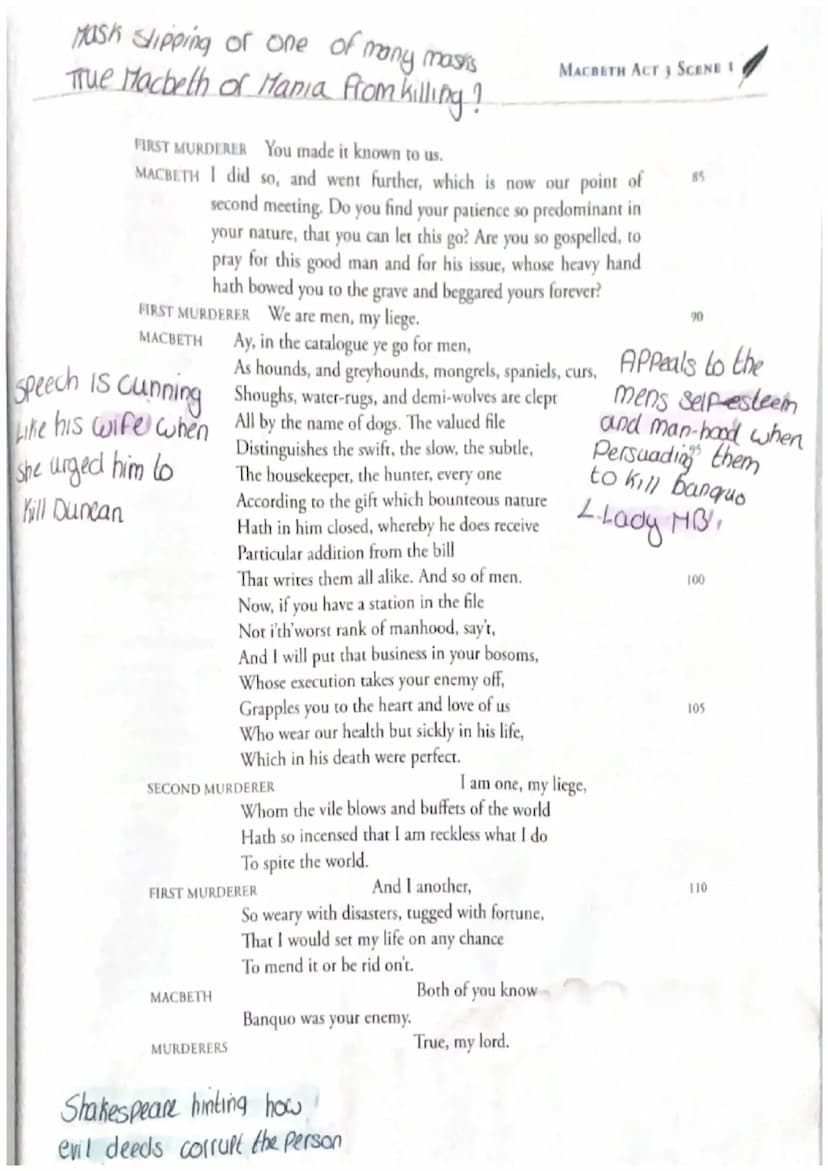 Mask slipping or one of many masks
True Macbeth or Mania from killing?
MACBETH ACT 3 SCENE 1
FIRST MURDERER You made it known to us.
MACBETH I did so, and went further, which is now our point of 85
second meeting. Do you find your patience so predominant in
your nature, that you can let this go? Are you so gospelled, to
pray for this good man and for his issue, whose heavy hand
hath bowed you to the grave and beggared yours forever?
FIRST MURDERER We are men, my liege. 90
MACBETH Ay, in the catalogue ye go for men,
As hounds, and greyhounds, mongrels, spaniels, curs,
Shoughs, water-rugs, and demi-wolves are clept
All by the name of dogs. The valued file
Distinguishes the swift, the slow, the subtle, 95
The housekeeper, the hunter, every one
According to the gift which bounteous nature
Hath in him closed, whereby he does receive
Particular addition from the bill
That writes them all alike. And so of men. 100
Now, if you have a station in the file
Not i'th'worst rank of manhood, say't,
And I will put that business in your bosoms,
Whose execution takes your enemy off,
Grapples you to the heart and love of us 105
Who wear our health but sickly in his life,
Which in his death were perfect.
SECOND MURDERER I am one, my liege,
Whom the vile blows and buffets of the world
Hath so incensed that I am reckless what I do
To spite the world.
FIRST MURDERER And I another, 110
So weary with disasters, tugged with fortune,
That I would set my life on any chance
To mend it or be rid on't.
MACBETH Both of you know
Banquo was your enemy.
MURDERERS True, my lord.
Speech is cunning
Like his wife when
she urged him to
Kill Duncan
Appeals to the
mens self-esteem
and man-hood when
Persuading them
to kill banquo
L.Lady MB
Shakespeare hinting how
evil deeds corrupt the person